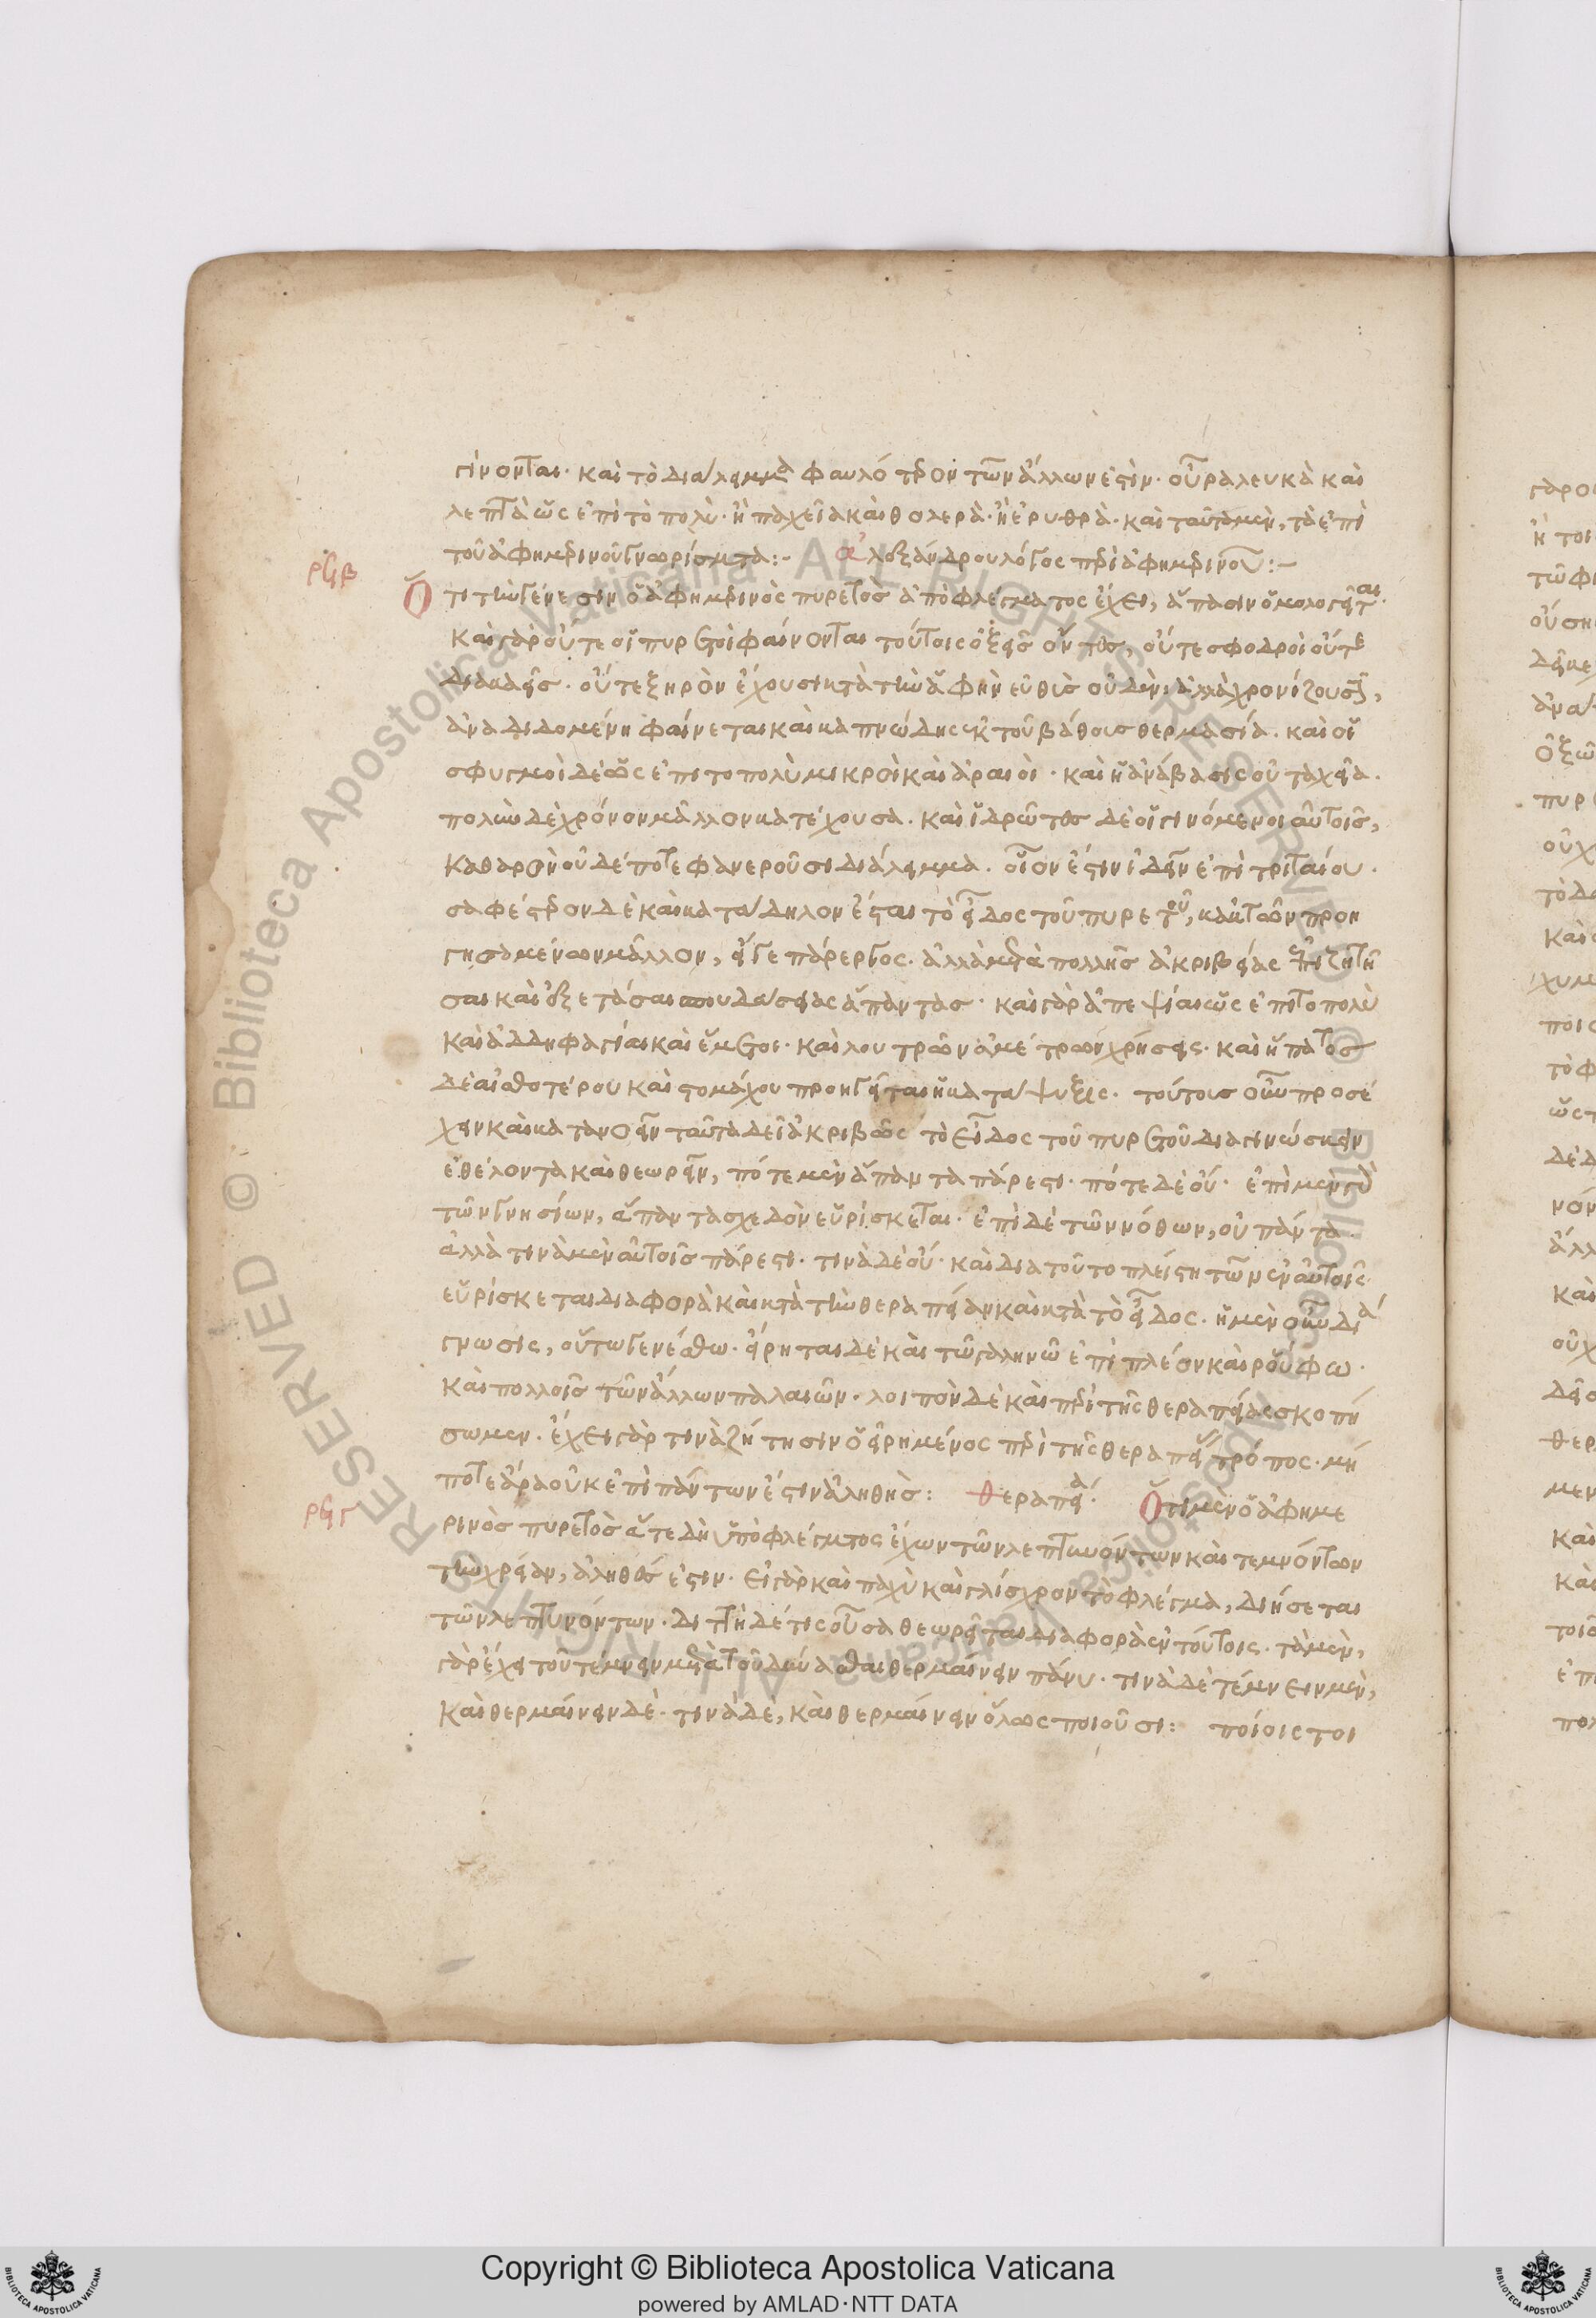 γίνονται· καὶ τὸ διάλημμα φαυλότερον τῶν ἄλλων ἐστὶν· οὖρα λευκὰ καὶ
λεπτὰ ὡς ἐπὶ τὸ πολὺ· ἢ παχεῖα καὶ θολερὰ· ἢ ἐρυθρὰ· καὶ ταῦτα μὲν, τὰ ἐπὶ
τοῦ ἀφημερινοῦ γνωρίσματα:- ἀλεξάνδρου λόγος περὶ ἀφημερινοῦ:-
ρϟβ
Ὅτι τὴν γένεσιν ὁ ἀφημερινὸς πυρετὸς ἀπὸ φλέγματος ἔχει, ἅπασιν ὁμολογεῖται.
καὶ γὰρ οὔτε οἱ πυρετοὶ φαίνονται τούτοις ὀξεῖς ὄντες, οὔτε σφοδροὶ οὔτε
διακαεῖς. οὔτε ξηρὸν ἔχουσι κατὰ τὴν ἁφὴν εὐθὺς οὐδὲν· ἀλλὰ χρονίζουσιν,
ἀναδιδομένη φαίνεται καὶ καπνώδης ἐκ τοῦ βάθους θερμασία. καὶ οἱ
σφυγμοὶ δὲ ὡς ἐπὶ το πολὺ μικροὶ καὶ ἀραιοὶ· καὶ ἡ ἀνάβασις οὐ ταχεῖα.
πολὺν δὲ χρόνον μᾶλλον κατέχουσα. καὶ ἱδρῶτες δὲ οἱ γινόμενοι αὐτοῖς,
καθαρὸν οὐδέποτε φανεροῦσι διάλημμα. οἷον ἔστιν ἰδεῖν ἐπὶ τριταίου.
σαφέστερον δὲ καὶ κατάδηλον ἔσται τὸ εἶδος τοῦ πυρετοῦ, κἀκ τῶν προη
γησαμένων μᾶλλον, εἴγε πάρεργος. ἀλλὰ μετὰ πολλῆς ἀκριβείας ἐπιζητῆ
σαι καὶ ἐξετάσαι σπουδάσειας ἅπαντας. καὶ γὰρ ἀπεψίαι ὡς ἐπὶ το πολὺ
καὶ ἀδδηφαγίαι καὶ ἔμετοι. καὶ λουτρῶν ἀμέτρων χρήσεις. καὶ ἥπατος
δὲ αἰσθοτέρου καὶ στομάχου προηγεῖται ἡ κατάψυξις. τούτοις οὖν προσέ
χειν καὶ κατανοεῖν ταῦτα δεῖ ἀκριβῶς τὸ εἶδος τοῦ πυρετοῦ διαγινώσκειν
ἐθέλοντα καὶ θεωρεῖν, πότε μὲν ἅπαντα πάρεστι· πότε δὲ οὔ· ἐπὶ μὲν γὰρ
τῶν γνησίων, ἅπαντα σχεδὸν εὑρίσκεται. ἐπὶ δὲ τῶν νόθων, οὐ πάντα.
ἀλλὰ τινὰ μὲν αὐτοῖς πάρεστι· τινὰ δὲ οὔ· καὶ δια τοῦτο πλείστη τῶν ἐν αὐτοῖς
εὑρίσκεται διαφορὰ καὶ κατὰ τὴν θεραπείαν καὶ κατὰ τὸ εἶδος. ἡ μὲν οὖν διά
γνωσις, οὕτω γενέσθω. εἴρηται δὲ καὶ τῷ γαληνῷ ἐπὶ πλέον καὶ ῥούφω.
καὶ πολλοῖς τῶν ἄλλων παλαιῶν. λοιπὸν δὲ καὶ περὶ τῆς θεραπείας σκοπή
σωμεν. ἔχει γὰρ τινὰ ζήτησιν ὁ εἰρημένος περὶ τῆς θεραπείας τρόπος. μή
ποτε ἄρα οὐκ ἐπὶ πάντων ἐστὶν ἀληθὴς: θεραπεία. Ὅτι μὲν ὁ ἀφημε
ρϟγ
ρινὸς πυρετὸς ἅτε δὴ ὑπὸ φλέγματος ἔχων τῶν λεπτυνόντων καὶ τεμνόντων
τὴν χρείαν, ἀληθές ἐστιν. εἰ γὰρ καὶ παχὺ καὶ γλίσχρον τὸ φλέγμα, διήσεται
τῶν λεπτυνόντων. διττὴ δέ τις οὖσα θεωρεῖται διαφορὰ ἐν τούτοις. τὰ μὲν,
γὰρ ἔχει τοῦ τέμνειν μετὰ τοῦ δύνασθαι θερμαίνειν πάνυ. τινὰ δὲ τέμνειν μὲν,
καὶ θερμαίνειν δὲ. τινὰ δὲ, καὶ θερμαίνειν ὅλως ποιοῦσι: ποίοις τοι
Copyright © Biblioteca Apostolica Vaticana
powered by AMLAD·NTT DATA